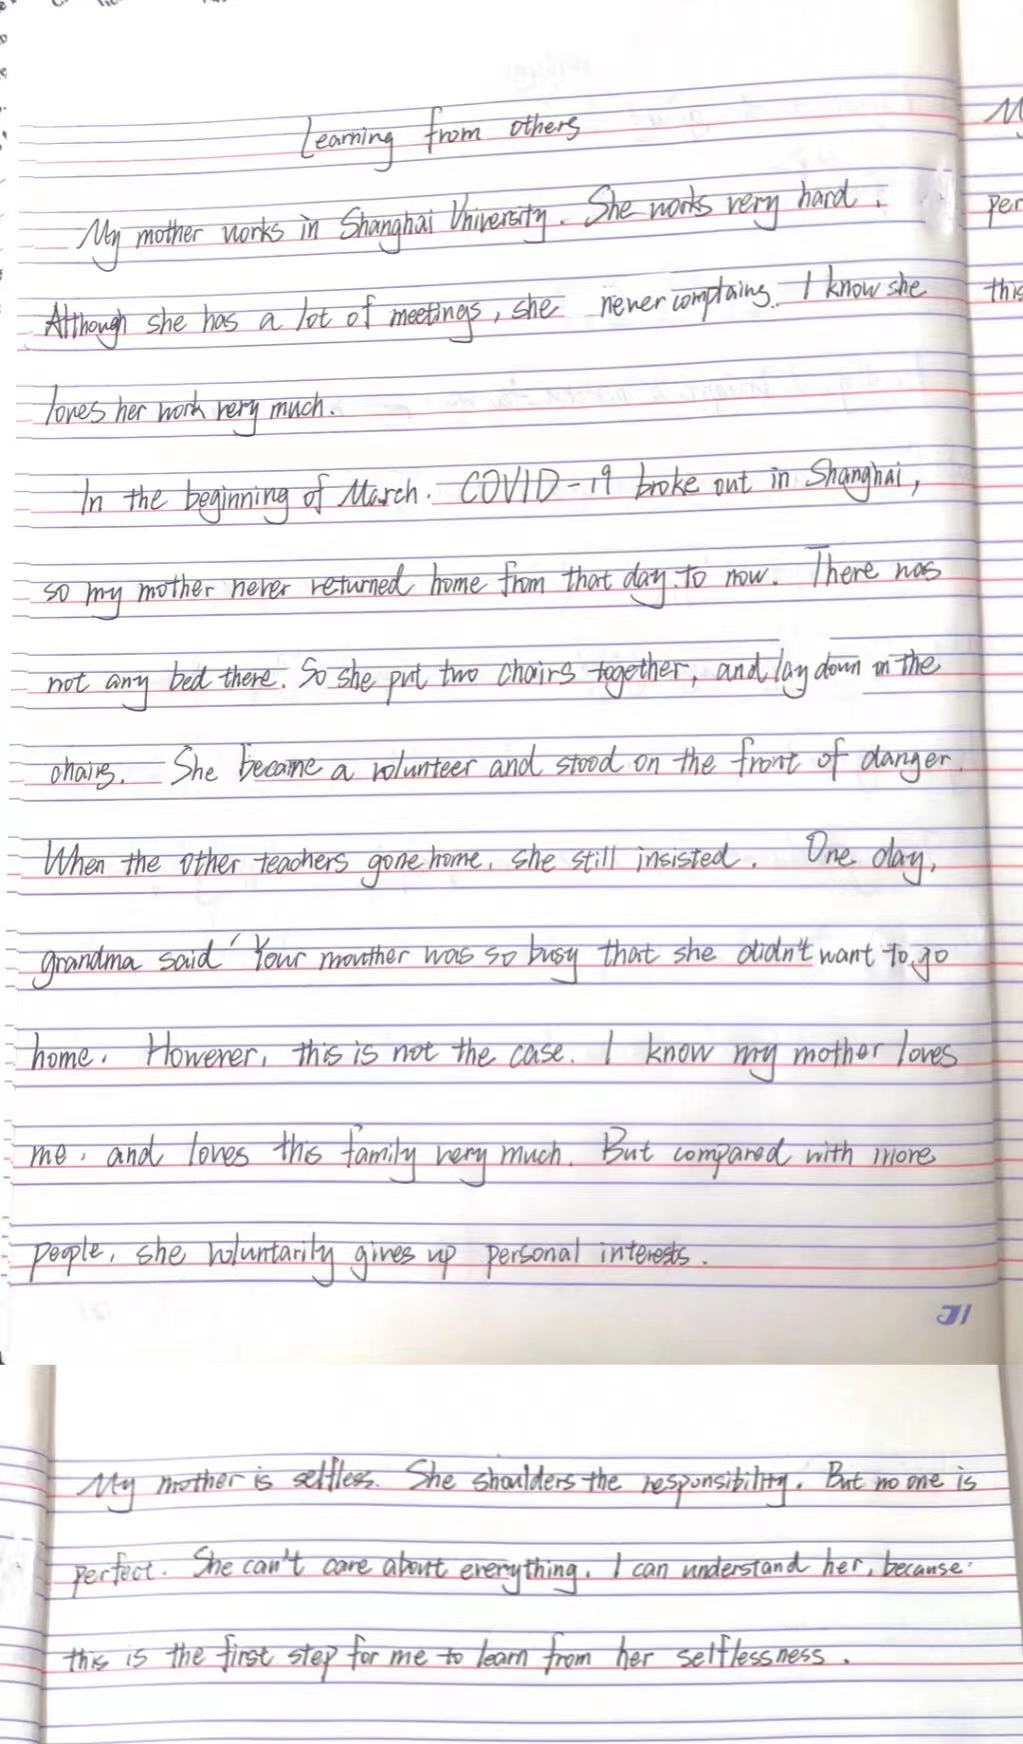 Learning from others
My mother works in Shanghai University. She works very hard.
Although she has a lot of meetings, she never complains. I know she
loves her work very much.
In the beginning of March. COVID-19 broke out in Shanghai,
so my mother never returned home from that day to now. There was
not any bed there. So she put two chairs together, and lay down on the
chairs. She became a volunteer and stood on the front of danger.
When the other teachers gone home, she still insisted. One day,
grandma said " Your mouther was so busy that she didn't want to go
home. However, this is not the case. I know my mother loves
me, and loves this family very much. But compared with more
people, she voluntarily gives up personal interests.
31
My mother is selfless. She shoulders the responsibility. But no one is
perfect. She can't care about everything. I can understand her, because
this is the first step for me to learn from her selflessness.